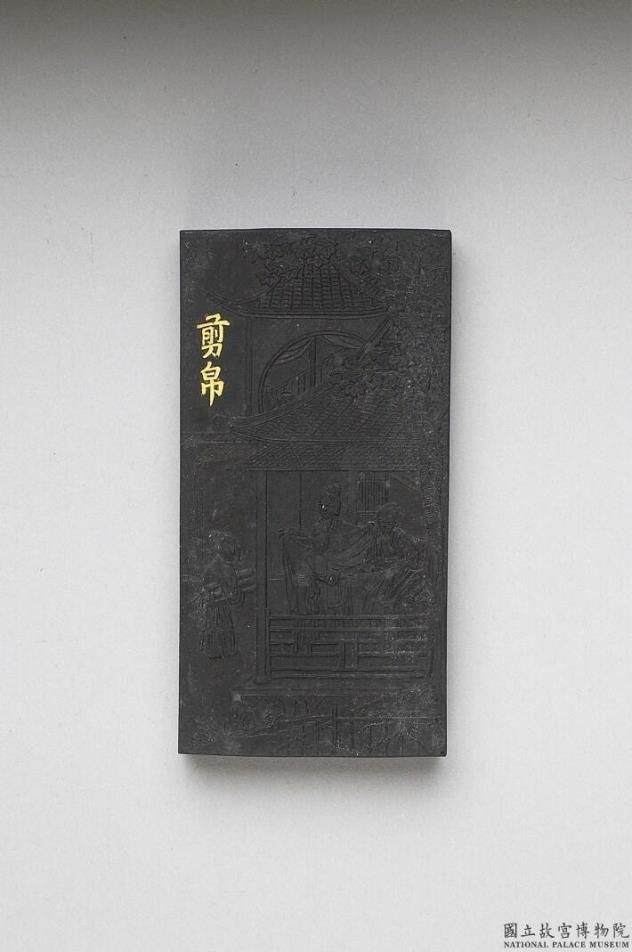 剪帛
國立故宮博物院
NATIONAL PALACE MUSEUM